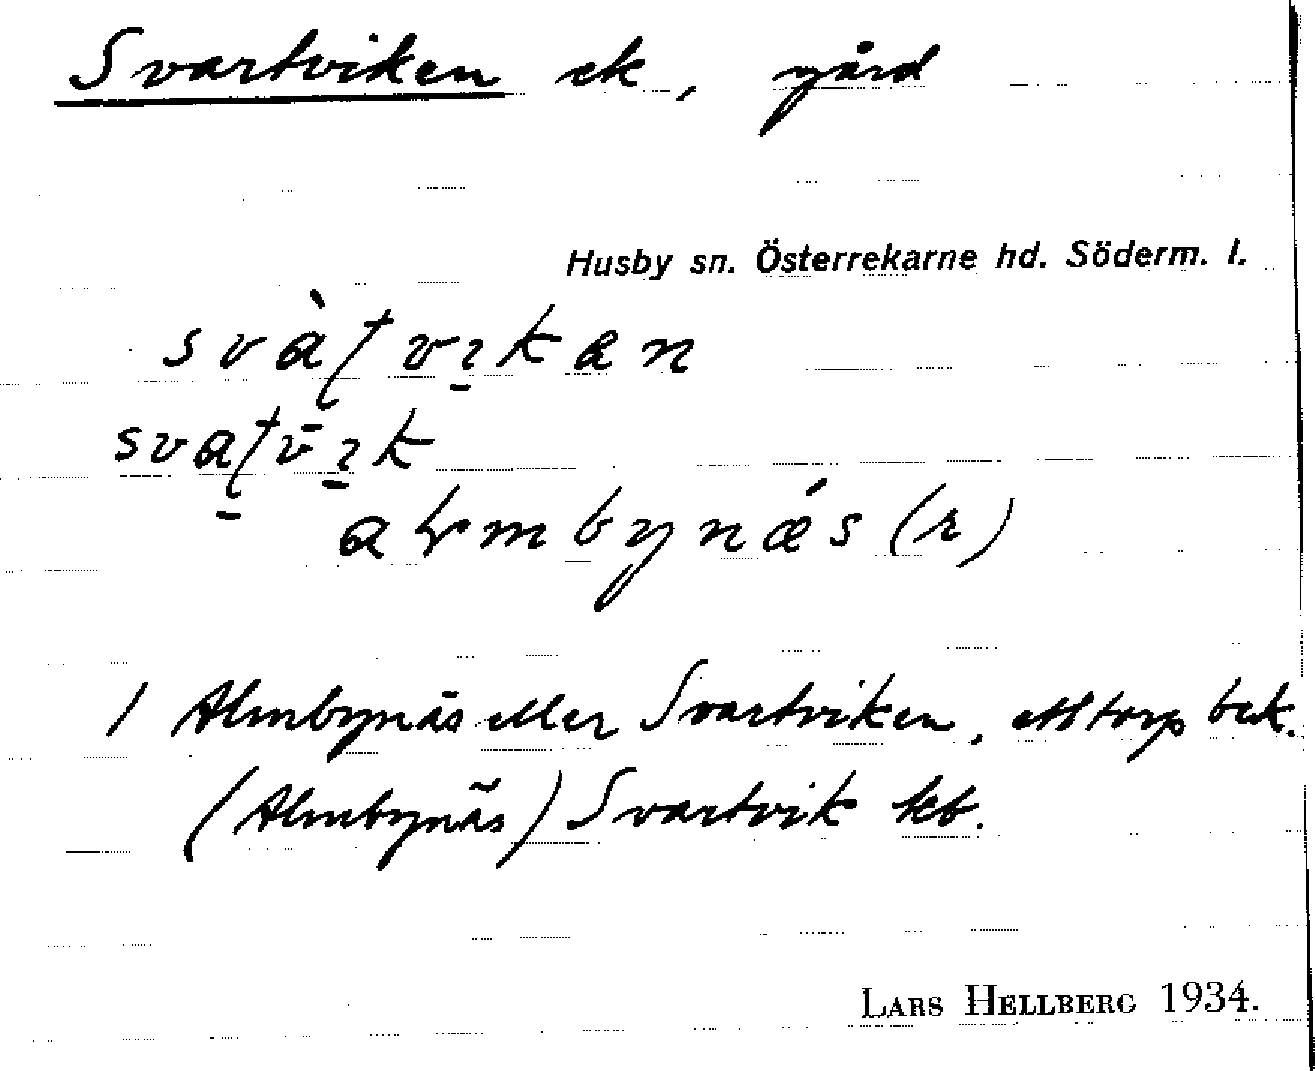 Svartviken ek, gård
Husby sn. Österrekarne hd. Söderm. l.
svàʈvı̱kan
bynǽs (r)
1 Almbynäs eller Svartviken, ett torp bek.
(Almbynäs) Svartvik kb.
LARS HELLBERG 1934.